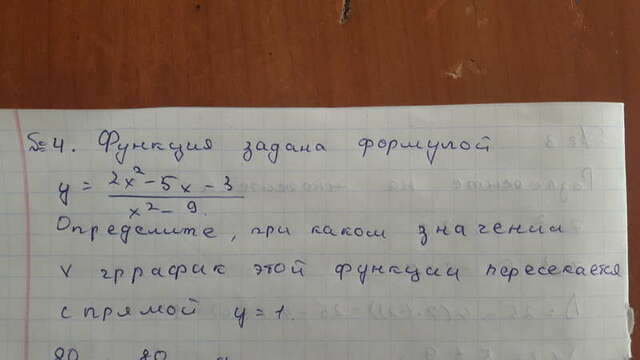 №4. Функция задана формулой
y = 2x² - 5x - 3 / x² - 9.
Определите, при каком значении
v гррафик этой функции пересекается
с прямой y = 1.
80 80